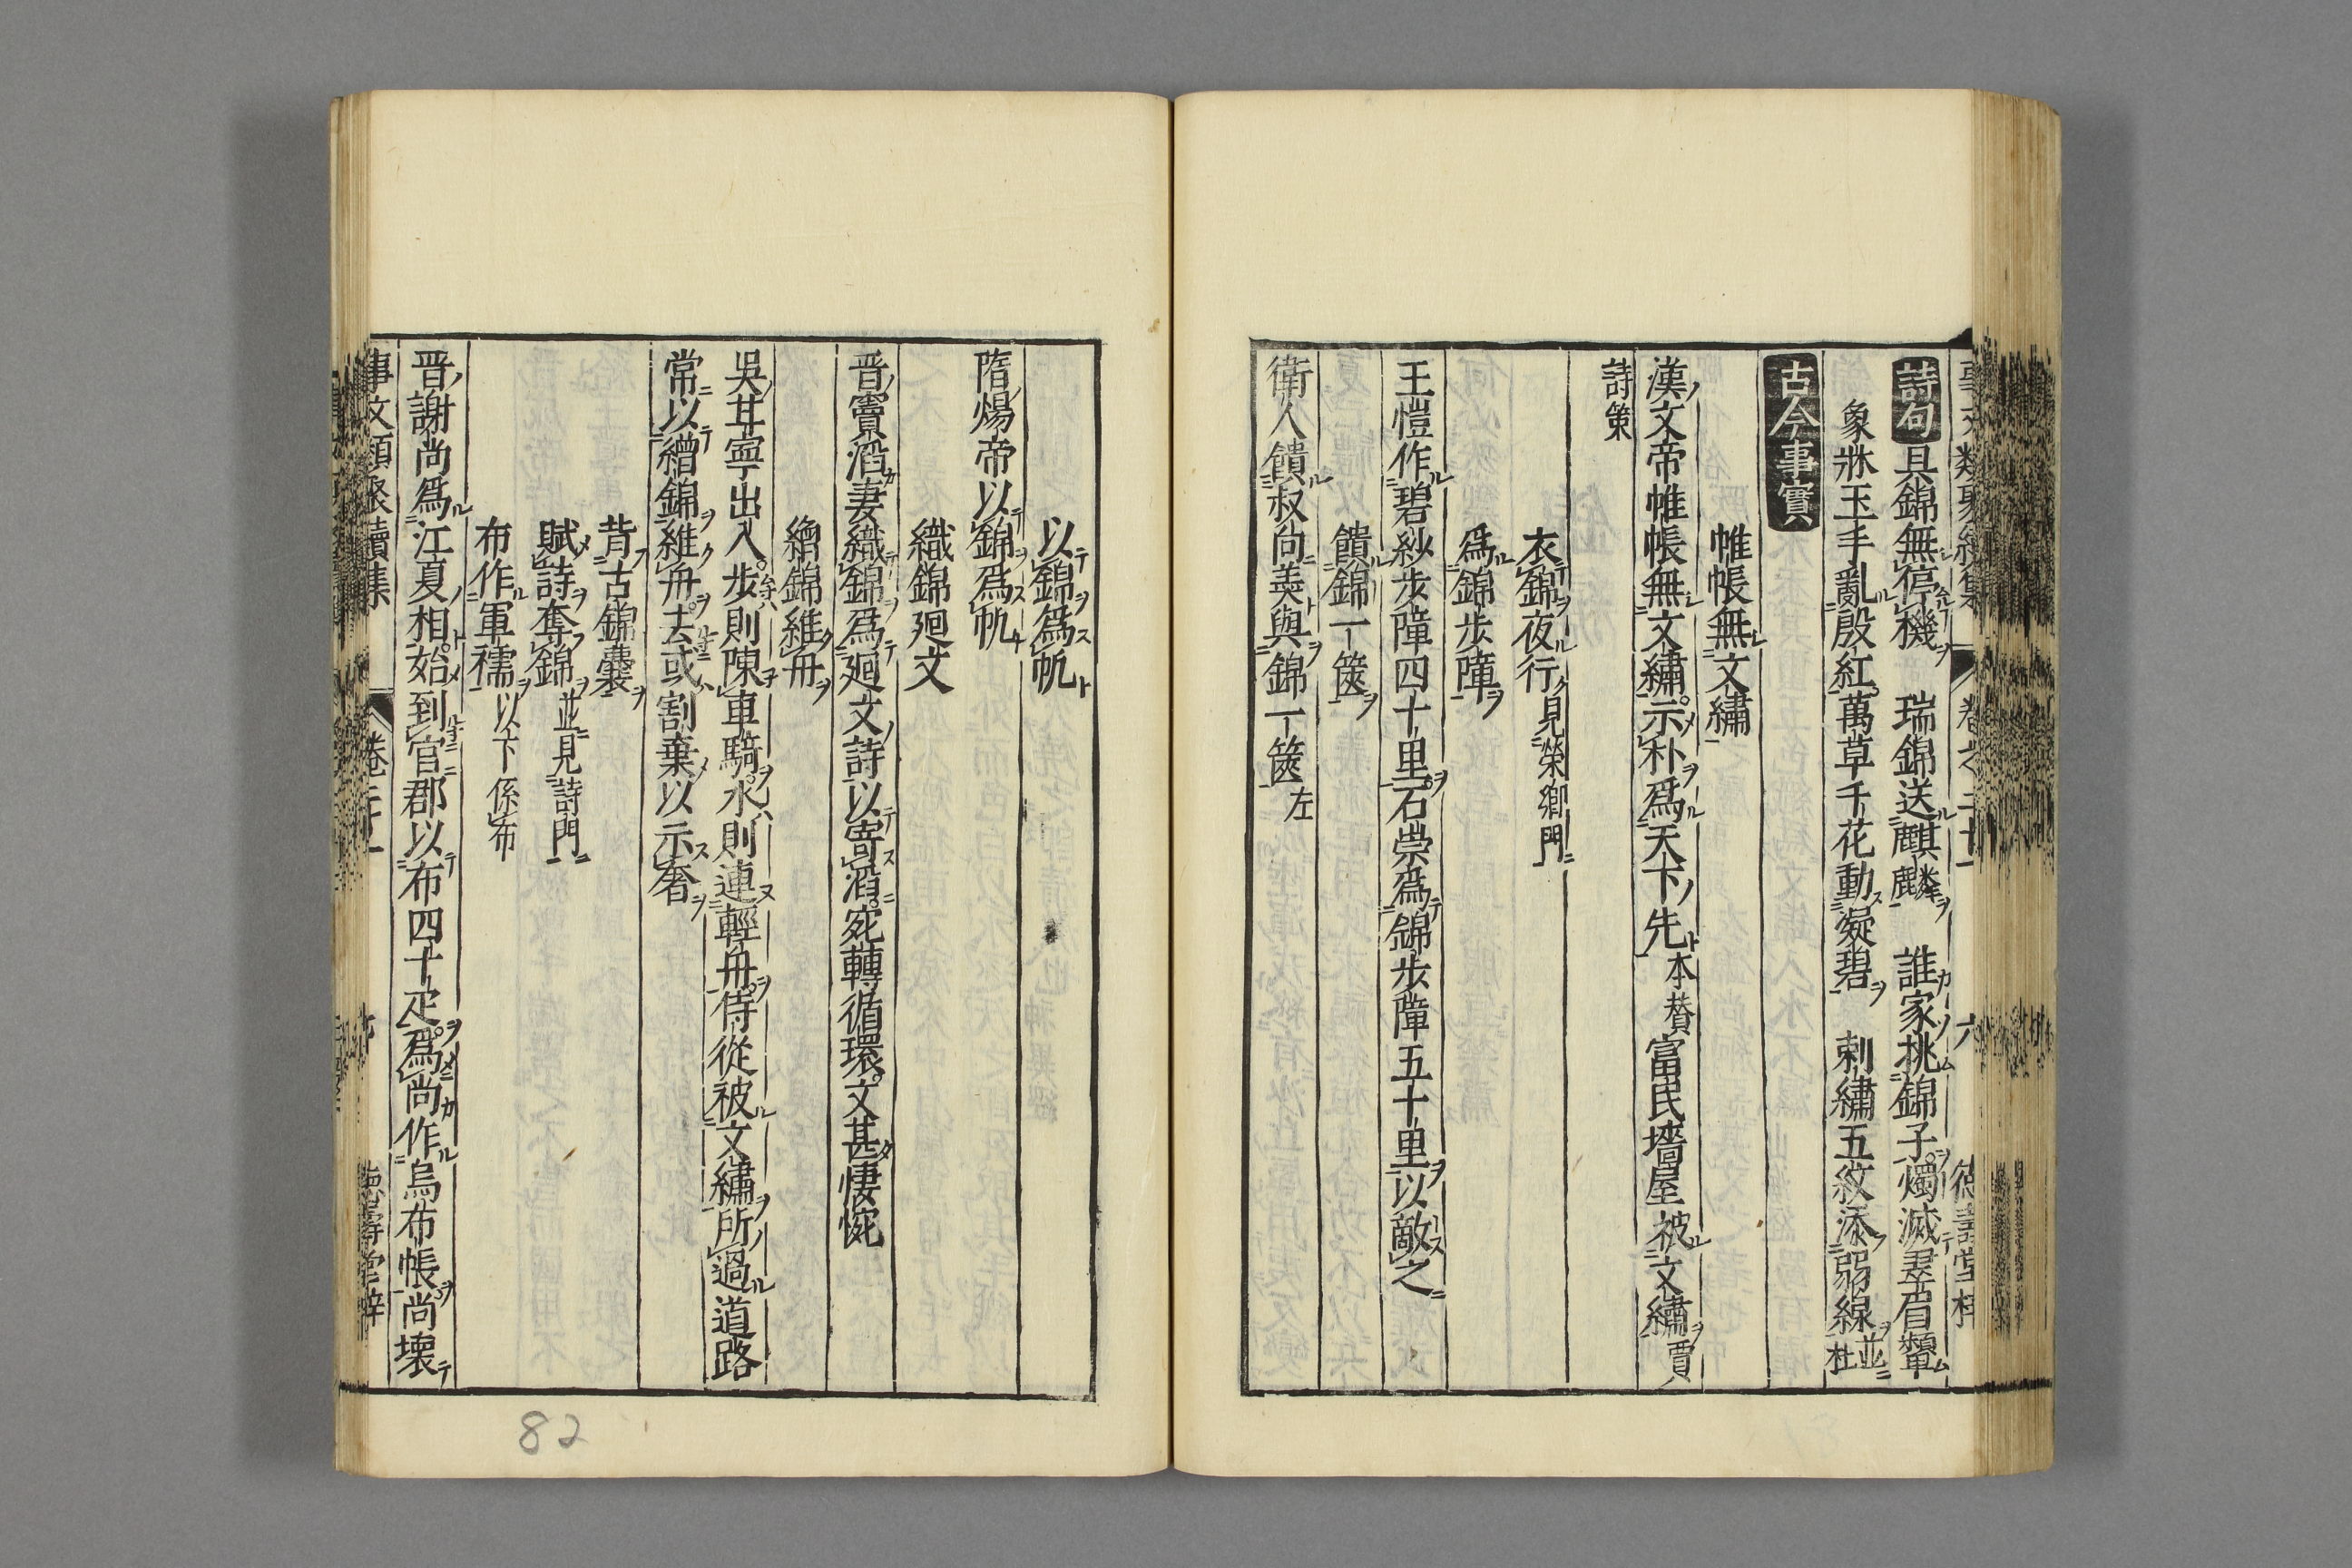 詩句具錦無停機　瑞錦送麒麟　誰家挑錦子燭滅翠眉顰
象牀玉手亂殷紅萬草千花動凝碧　刺繡五紋添弱線並杜
古今事實
帷帳無文繡
漢文帝帷帳無文繡示朴爲天下先本賛富民墻屋被文繡賈
誼策
衣錦夜行見榮郷門
爲錦步障
王愷作碧紗步障四十里石崇爲錦步障五十里以敵之
饋錦一篋
衛人饋叔向羹與錦一篋左
以錦爲帆
隋煬帝以錦爲帆
織錦廻文
晋竇滔妻織錦爲廻文詩以寄滔宛轉循環文甚悽惋
繒錦維舟
吳甘寧出入步則陳車騎水則連輕舟侍從被文繡所過道路
常以繒錦維舟去或割棄以示奢
背古錦囊
賦詩奪錦並見詩門
布作軍襦以下係布
晋謝尚爲江夏相始到官郡以布四十疋爲尚作烏布帳尚壊
事文類聚續集
82